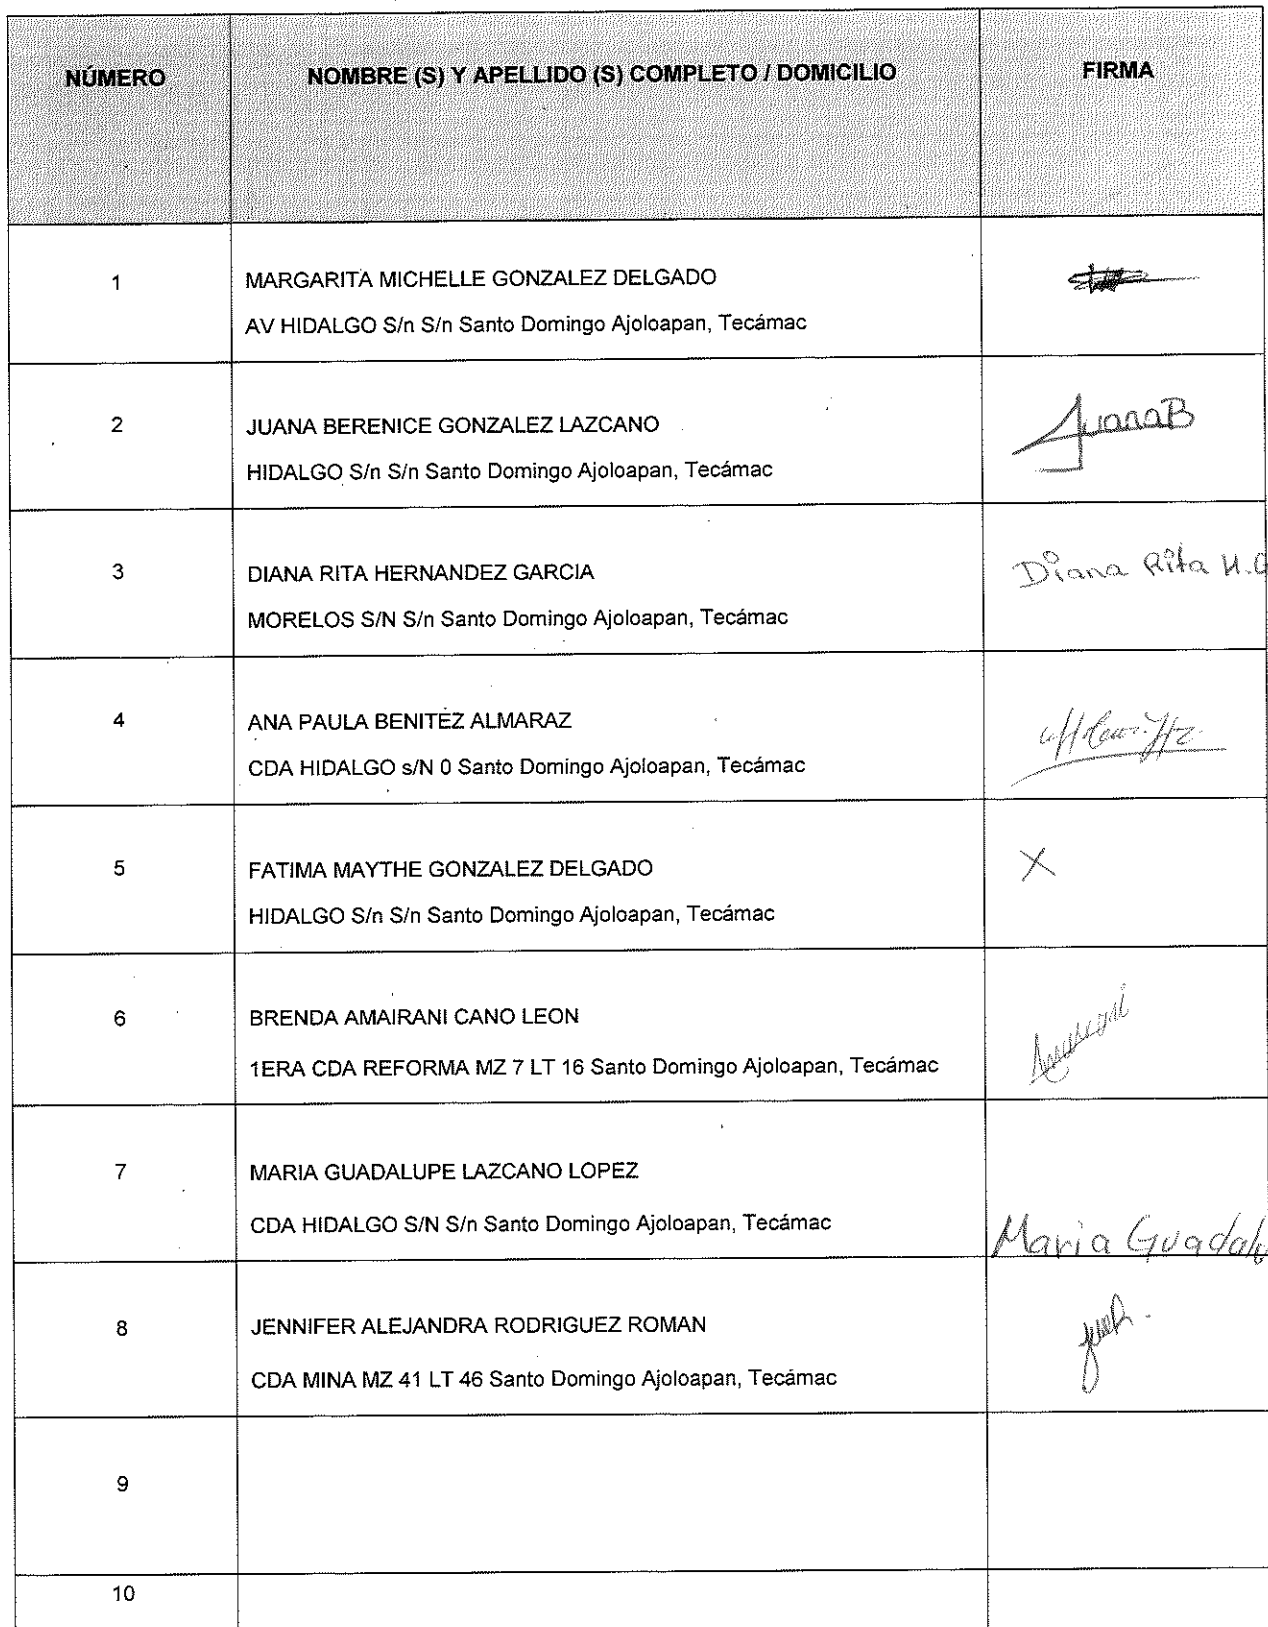 NÚMERO NOMBRE (S) Y APELLIDO (S) COMPLETO / DOMICILIO FIRMA
1 MARGARITA MICHELLE GONZALEZ DELGADO
AV HIDALGO S/n S/n Santo Domingo Ajoloapan, Tecámac
2 JUANA BERENICE GONZALEZ LAZCANO JuanaB
HIDALGO S/n S/n Santo Domingo Ajoloapan, Tecámac
3 DIANA RITA HERNANDEZ GARCIA Diana Rita H.G
MORELOS S/N S/n Santo Domingo Ajoloapan, Tecámac
4 ANA PAULA BENITEZ ALMARAZ
CDA HIDALGO s/N 0 Santo Domingo Ajoloapan, Tecámac
5 FATIMA MAYTHE GONZALEZ DELGADO X
HIDALGO S/n S/n Santo Domingo Ajoloapan, Tecámac
6 BRENDA AMAIRANI CANO LEON
1ERA CDA REFORMA MZ 7 LT 16 Santo Domingo Ajoloapan, Tecámac
7 MARIA GUADALUPE LAZCANO LOPEZ
CDA HIDALGO S/N S/n Santo Domingo Ajoloapan, Tecámac Maria Guadalu
8 JENNIFER ALEJANDRA RODRIGUEZ ROMAN
CDA MINA MZ 41 LT 46 Santo Domingo Ajoloapan, Tecámac
9
10